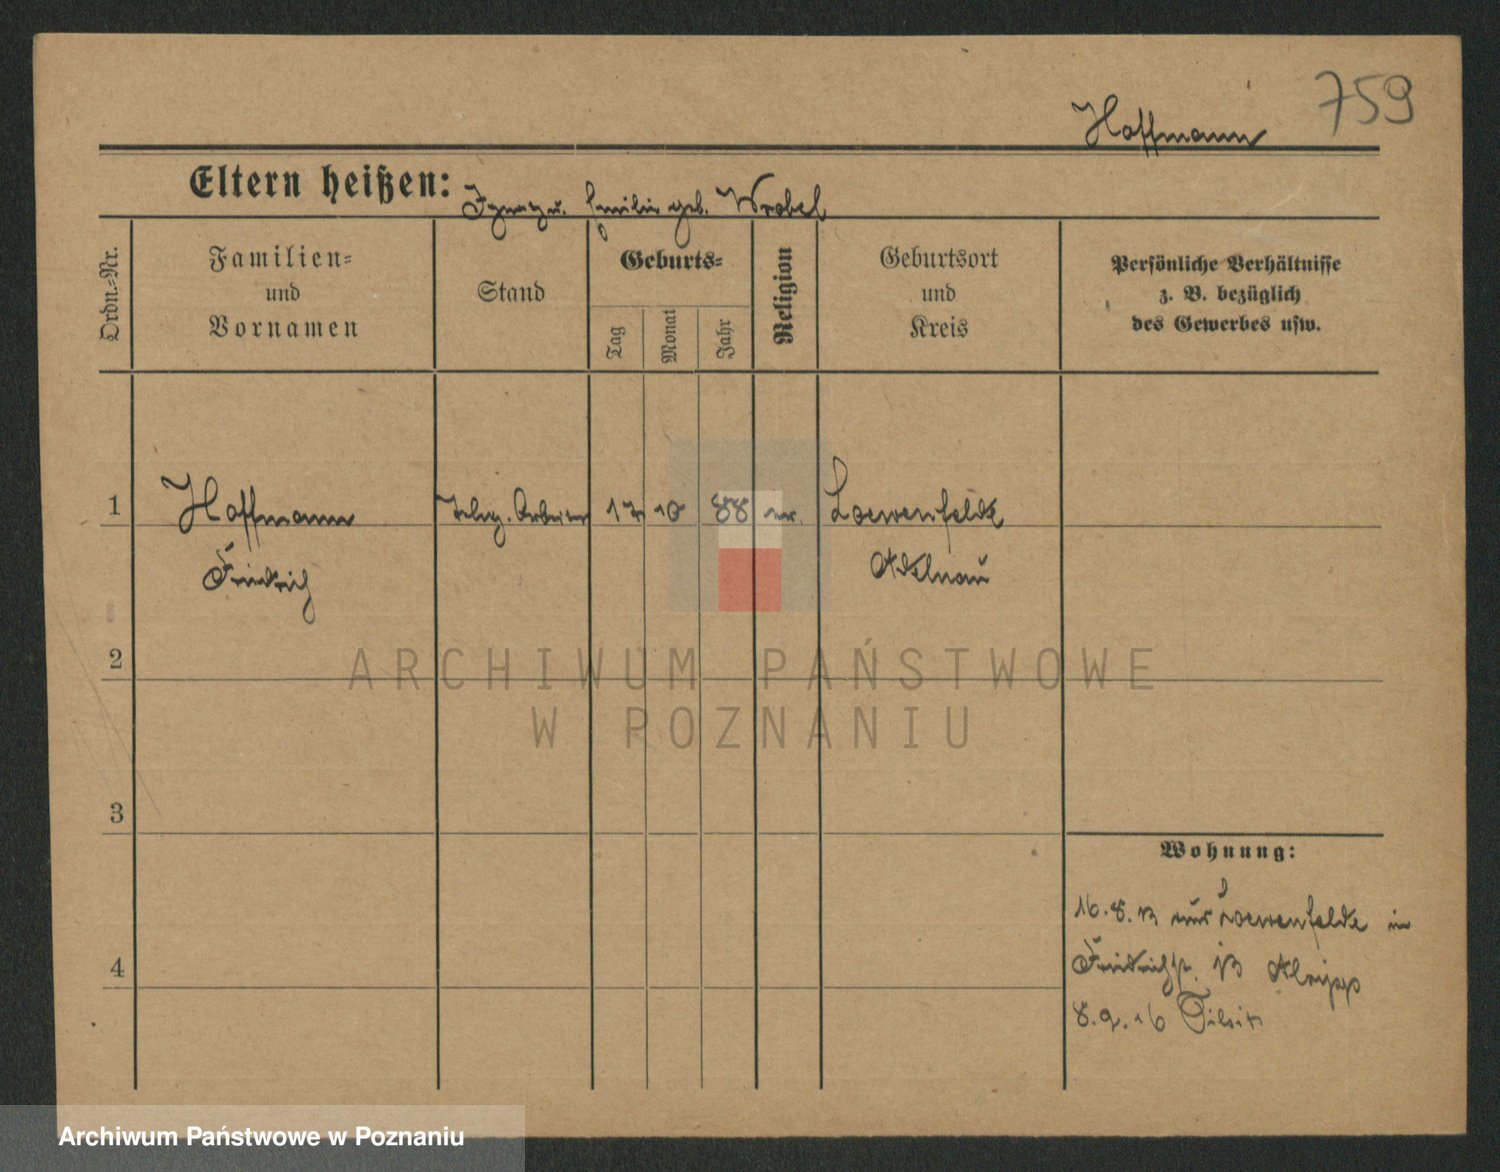 759
Hoffmann
Eltern heißen: Ignaz u. Emilie geb. Wrobel
Ordn.-Nr.
Familien-
und
Vornamen
Stand
Geburts-
Tag
Monat
Jahr
Religion
Geburtsort
und
Kreis
Persönliche Verhältnisse
z. B. bezüglich
des Gewerbes usw.
1 Hoffmann Teleg. Arbeiter 17 10 88 Loewenfelde
Friedrich Adelnau
2
3
4
Wohnung:
16.8.13 aus Loewenfelde in
Friedrichstr. 13
8.9.16 Tilsit
ARCHIWUM PAŃSTWOWE
W POZNANIU
Archiwum Państwowe w Poznaniu